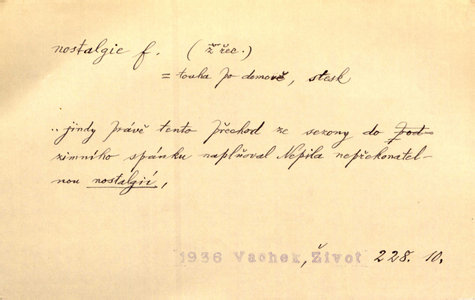 nostalgie f. (ž řec.)
= touha po domově, stesk
..jindy právě tento přechod ze sezony do pod-
zimního spánku naplňoval Nepila nepřekonatel-
nou nostalgií,
1936 Vachek, Život 228. 10.